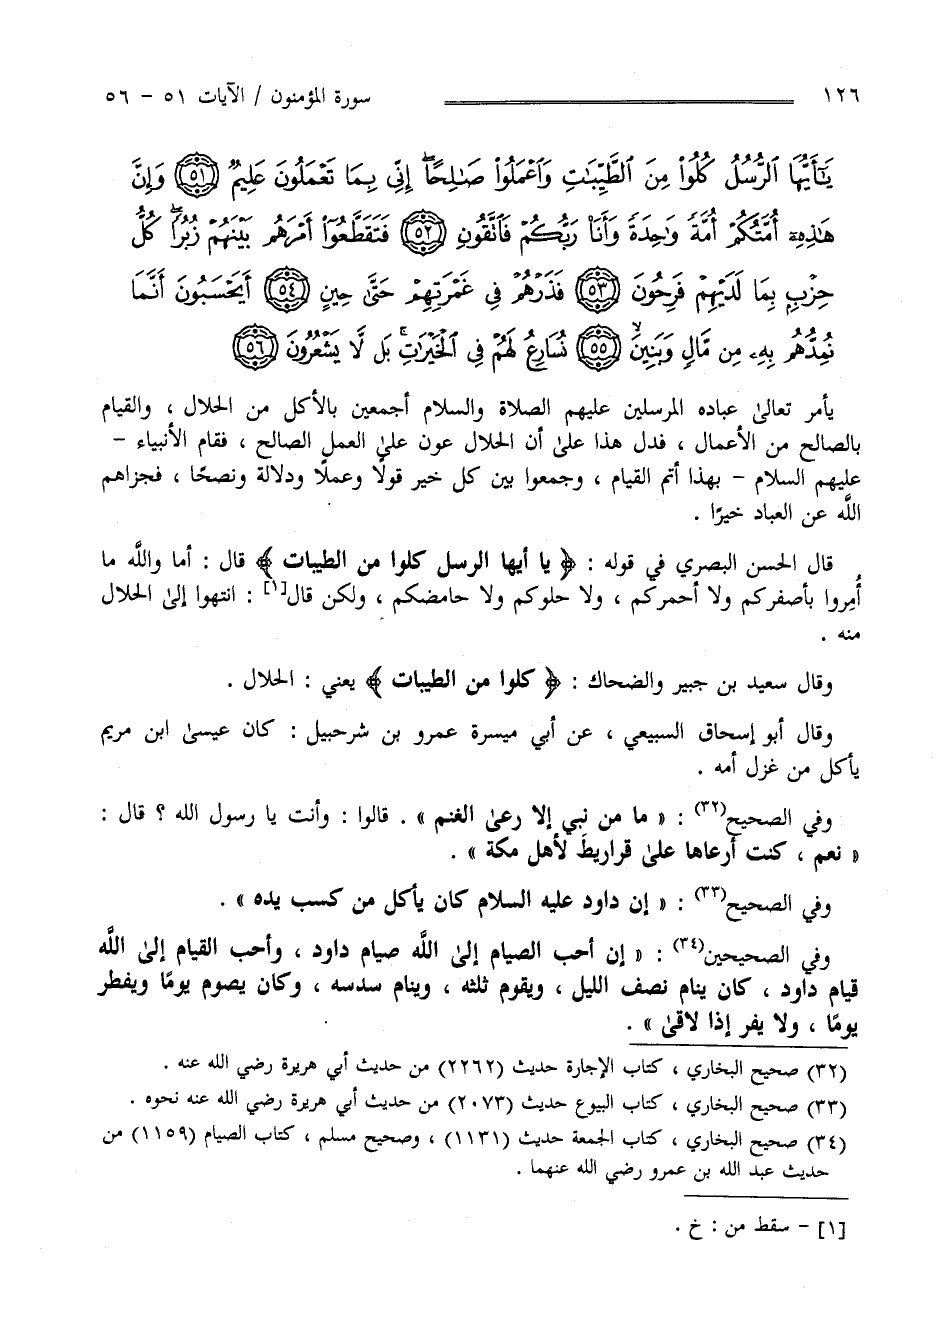 ١٢٦ سورة المؤمنون / الآيات ٥١ – ٥٦
يَٰٓأَيُّهَا ٱلرُّسُلُ كُلُوا۟ مِنَ ٱلطَّيِّبَٰتِ وَٱعْمَلُوا۟ صَٰلِحًا ۖ إِنِّى بِمَا تَعْمَلُونَ عَلِيمٌ ٥١ وَإِنَّ
هَٰذِهِۦٓ أُمَّتُكُمْ أُمَّةً وَٰحِدَةً وَأَنَا۠ رَبُّكُمْ فَٱتَّقُونِ ٥٢ فَتَقَطَّعُوٓا۟ أَمْرَهُم بَيْنَهُمْ زُبُرًا ۖ كُلُّ
حِزْبٍۭ بِمَا لَدَيْهِمْ فَرِحُونَ ٥٣ فَذَرْهُمْ فِى غَمْرَتِهِمْ حَتَّىٰ حِينٍ ٥٤ أَيَحْسَبُونَ أَنَّمَا
نُمِدُّهُم بِهِۦ مِن مَّالٍ وَبَنِينَ ٥٥ نُسَارِعُ لَهُمْ فِى ٱلْخَيْرَٰتِ ۚ بَل لَّا يَشْعُرُونَ ٥٦
يأمر تعالىٰ عباده المرسلين عليهم الصلاة والسلام أجمعين بالأكل من الحلال ، والقيام
بالصالح من الأعمال ، فدل هذا علىٰ أن الحلال عون علىٰ العمل الصالح ، فقام الأنبياء –
عليهم السلام – بهذا أتم القيام ، وجمعوا بين كل خير قولًا وعملًا ودلالة ونصحًا ، فجزاهم
اللَّه عن العباد خيرًا .
قال الحسن البصري في قوله : ﴿ يا أيها الرسل كلوا من الطيبات ﴾ قال : أما واللَّه ما
أُمِروا بأصفركم ولا أحمركم ، ولا حلوكم ولا حامضكم ، ولكن قال[١] : انتهوا إلىٰ الحلال
منه .
وقال سعيد بن جبير والضحاك : ﴿ كلوا من الطيبات ﴾ يعني : الحلال .
وقال أبو إسحاق السبيعي ، عن أبي ميسرة عمرو بن شرحبيل : كان عيسىٰ ابن مريم
يأكل من غزل أمه .
وفي الصحيح(٣٢) : « ما من نبي إلا رعىٰ الغنم » . قالوا : وأنت يا رسول الله ؟ قال :
« نعم ، كنت أرعاها علىٰ قراريطَ لأهل مكة » .
وفي الصحيح(٣٣) : « إن داود عليه السلام كان يأكل من كسب يده » .
وفي الصحيحين(٣٤) : « إن أحب الصيام إلىٰ اللَّه صيام داود ، وأحب القيام إلىٰ اللَّه
قيام داود ، كان ينام نصف الليل ، ويقوم ثلثه ، وينام سدسه ، وكان يصوم يومًا ويفطر
يومًا ، ولا يفر إذا لاقىٰ » .
(٣٢) صحيح البخاري ، كتاب الإجارة حديث (٢٢٦٢) من حديث أبي هريرة رضي الله عنه .
(٣٣) صحيح البخاري ، كتاب البيوع حديث (٢٠٧٣) من حديث أبي هريرة رضي الله عنه نحوه .
(٣٤) صحيح البخاري ، كتاب الجمعة حديث (١١٣١) ، وصحيح مسلم ، كتاب الصيام (١١٥٩) من
حديث عبد الله بن عمرو رضي الله عنهما .
[١] – سقط من : خ .